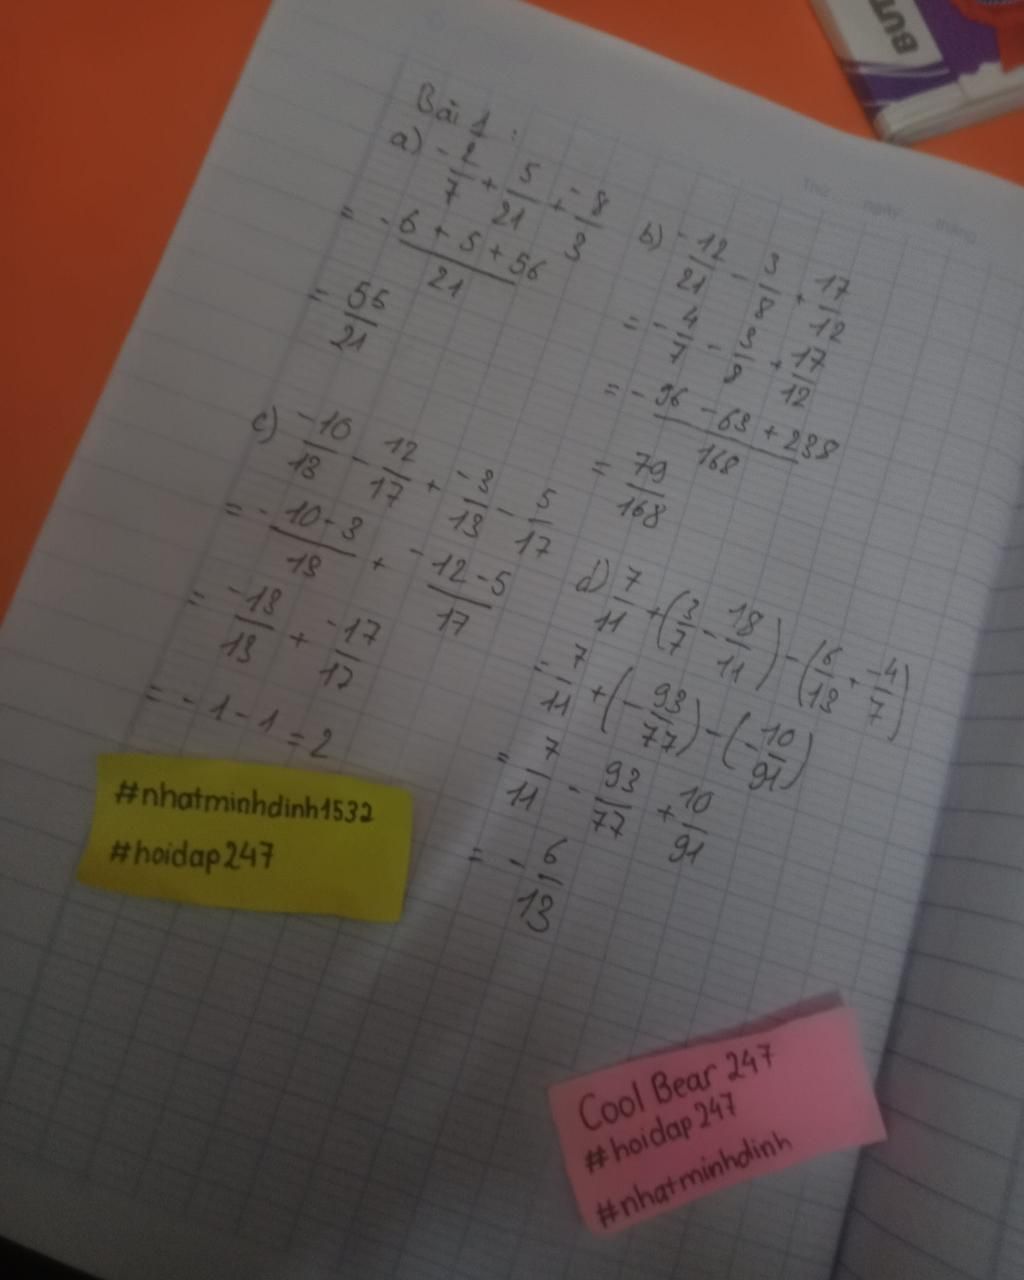 BUT
Thứ ngày tháng
Bài 1 :
a) -2/7 + 5/21 + -8/3
= -6 + 5 + 56/21
= 56/21
b) -12/21 - 3/8 + 17/12
= -4/7 - 3/8 + 17/12
= -96 - 63 + 238/168
= 79/168
c) -10/13 - 12/17 + -3/13 - 5/17
= -10-3/13 + -12-5/17
= -13/13 + -17/17
= -1-1 = 2
d) 7/11 + (3/7 - 18/11) - (6/13 + -4/7)
= 7/11 + (-93/77) - (-10/91)
= 7/11 - 93/77 + 10/91
= -6/13
#nhatminhdinh1532
#hoidap247
Cool Bear 247
#hoidap247
#nhatminhdinh